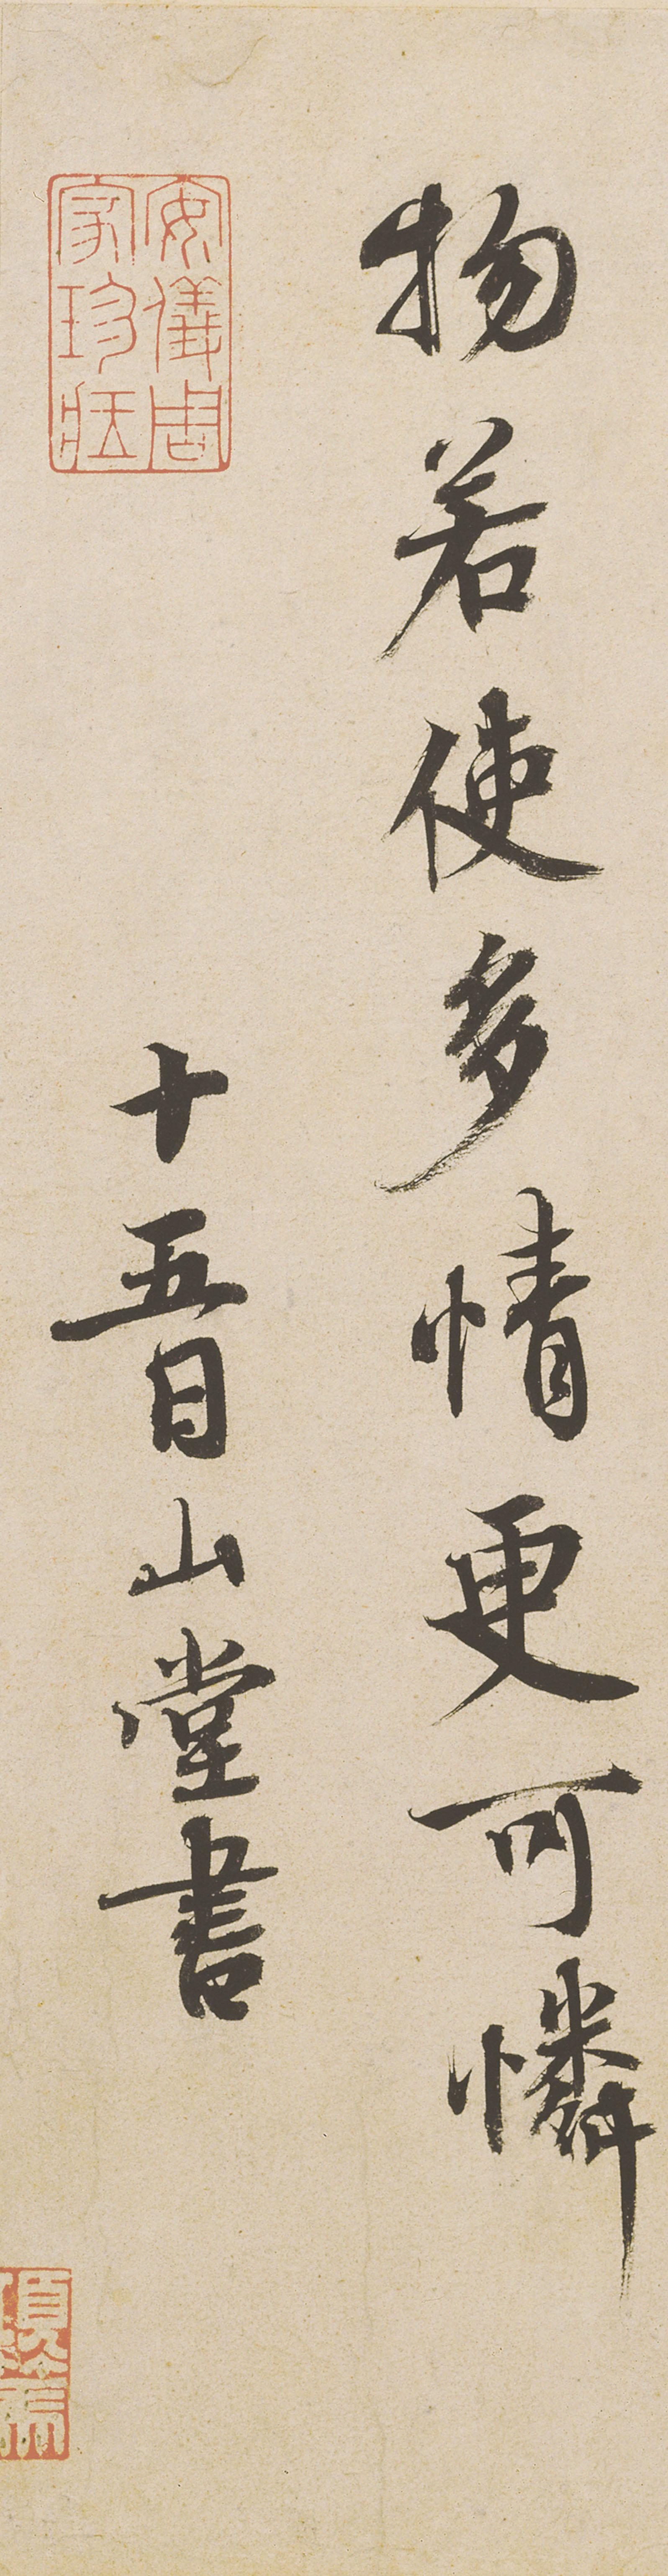 物若使多情更可憐
十五日山堂書
安儀周
家珍藏